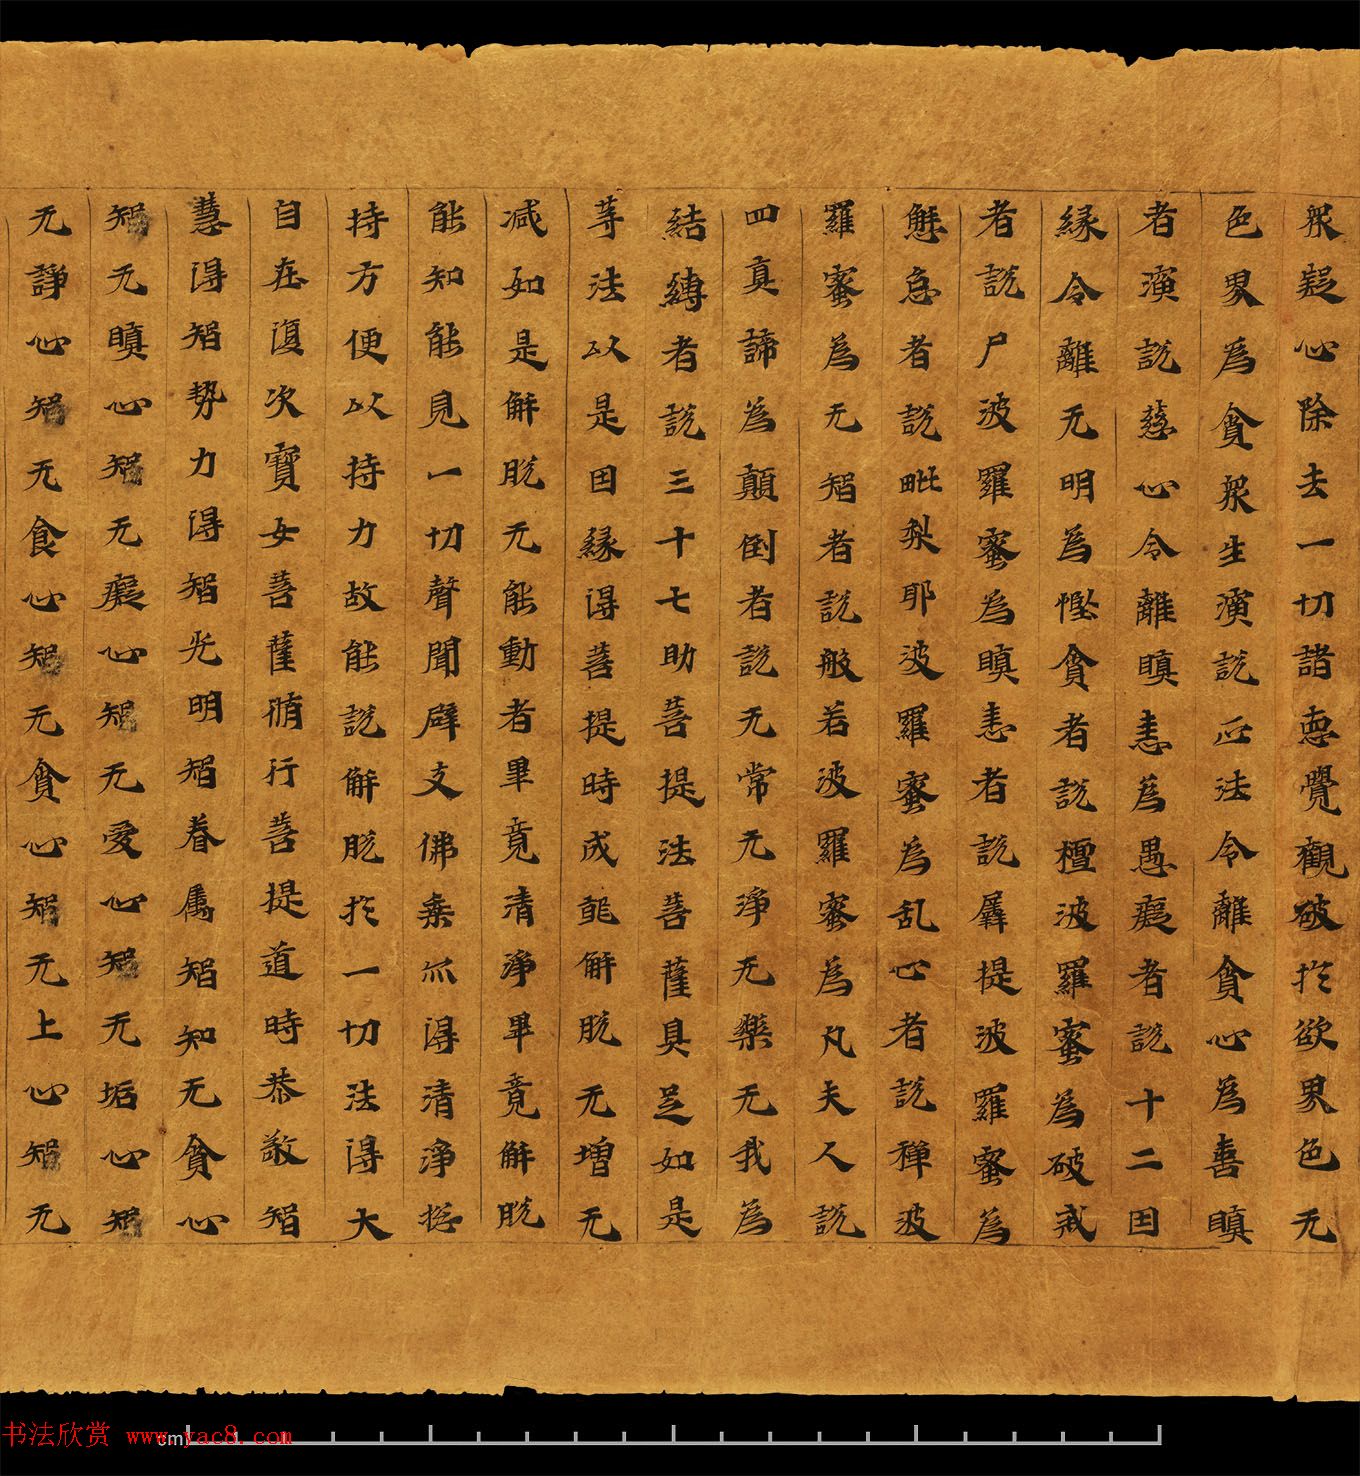 眾疑心除去一切諸惡覺觀破於欲界色无
色界為貪眾生演說正法令離貪心為喜瞋
者演說慈心令離瞋恚為愚癡者說十二因
緣令離无明為慳貪者說檀波羅蜜為破戒
者說尸波羅蜜為瞋恚者說羼提波羅蜜為
懈怠者說毗梨耶波羅蜜為乱心者說禪波
羅蜜為无智者說般若波羅蜜為凡夫人說
四真諦為顛倒者說无常无淨无樂无我為
結縛者說三十七助菩提法菩薩具足如是
等法以是因緣得菩提時成就解脫无增无
减如是解脫无能動者畢竟清淨畢竟解脫
能知能見一切聲聞辟支佛乘尒得清淨捴
持方便以持力故能說解脫於一切法得大
自在復次寶女菩薩脩行菩提道時恭敬智
慧得智勢力得智光明智眷属智知无貪心
智无瞋心智无癡心智无愛心智无垢心智
无諍心智无食心智无貪心智无上心智无
cm
书法欣赏 www.yac8.com